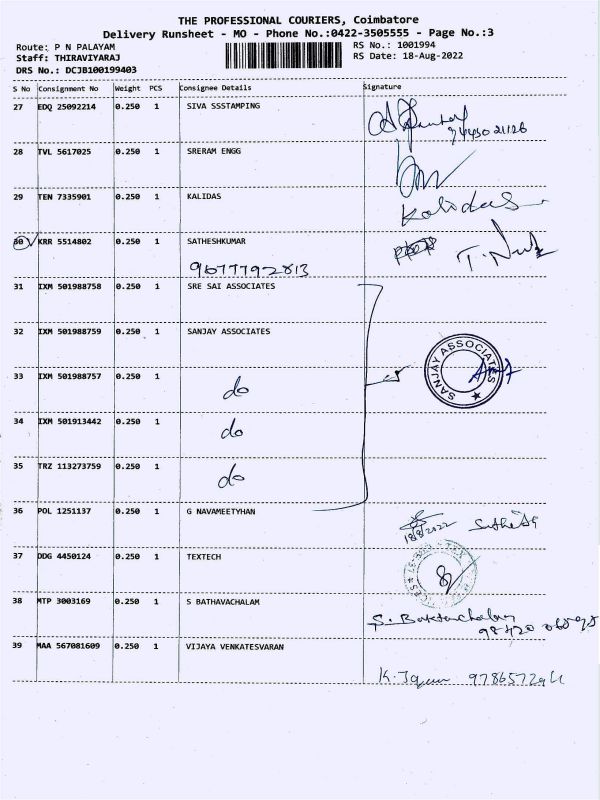 THE PROFESSIONAL COURIERS, Coimbatore
Delivery Runsheet - MO - Phone No.:0422-3505555 - Page No.:3
Route: P N PALAYAM
Staff: THIRAVIYARAJ
DRS No.: DCJB100199403
RS No.: 1001994
RS Date: 18-Aug-2022
S No Consignment No Weight PCS Consignee Details Signature
27 EDQ 25092214 0.250 1 SIVA SSSTAMPING
28 TVL 5617025 0.250 1 SRERAM ENGG
29 TEN 7335901 0.250 1 KALIDAS Kalidas
30 KRR 5514802 0.250 1 SATHESHKUMAR
9677792813
31 IXM 501988758 0.250 1 SRE SAI ASSOCIATES
32 IXM 501988759 0.250 1 SANJAY ASSOCIATES
SANJAY ASSOCIATES
33 IXM 501988757 0.250 1 do
34 IXM 501913442 0.250 1 do
35 TRZ 113273759 0.250 1 do
36 POL 1251137 0.250 1 G NAVAMEETYHAN
18/8/2022
37 DDG 4450124 0.250 1 TEXTECH
38 MTP 3003169 0.250 1 S BATHAVACHALAM
39 MAA 567081609 0.250 1 VIJAYA VENKATESVARAN